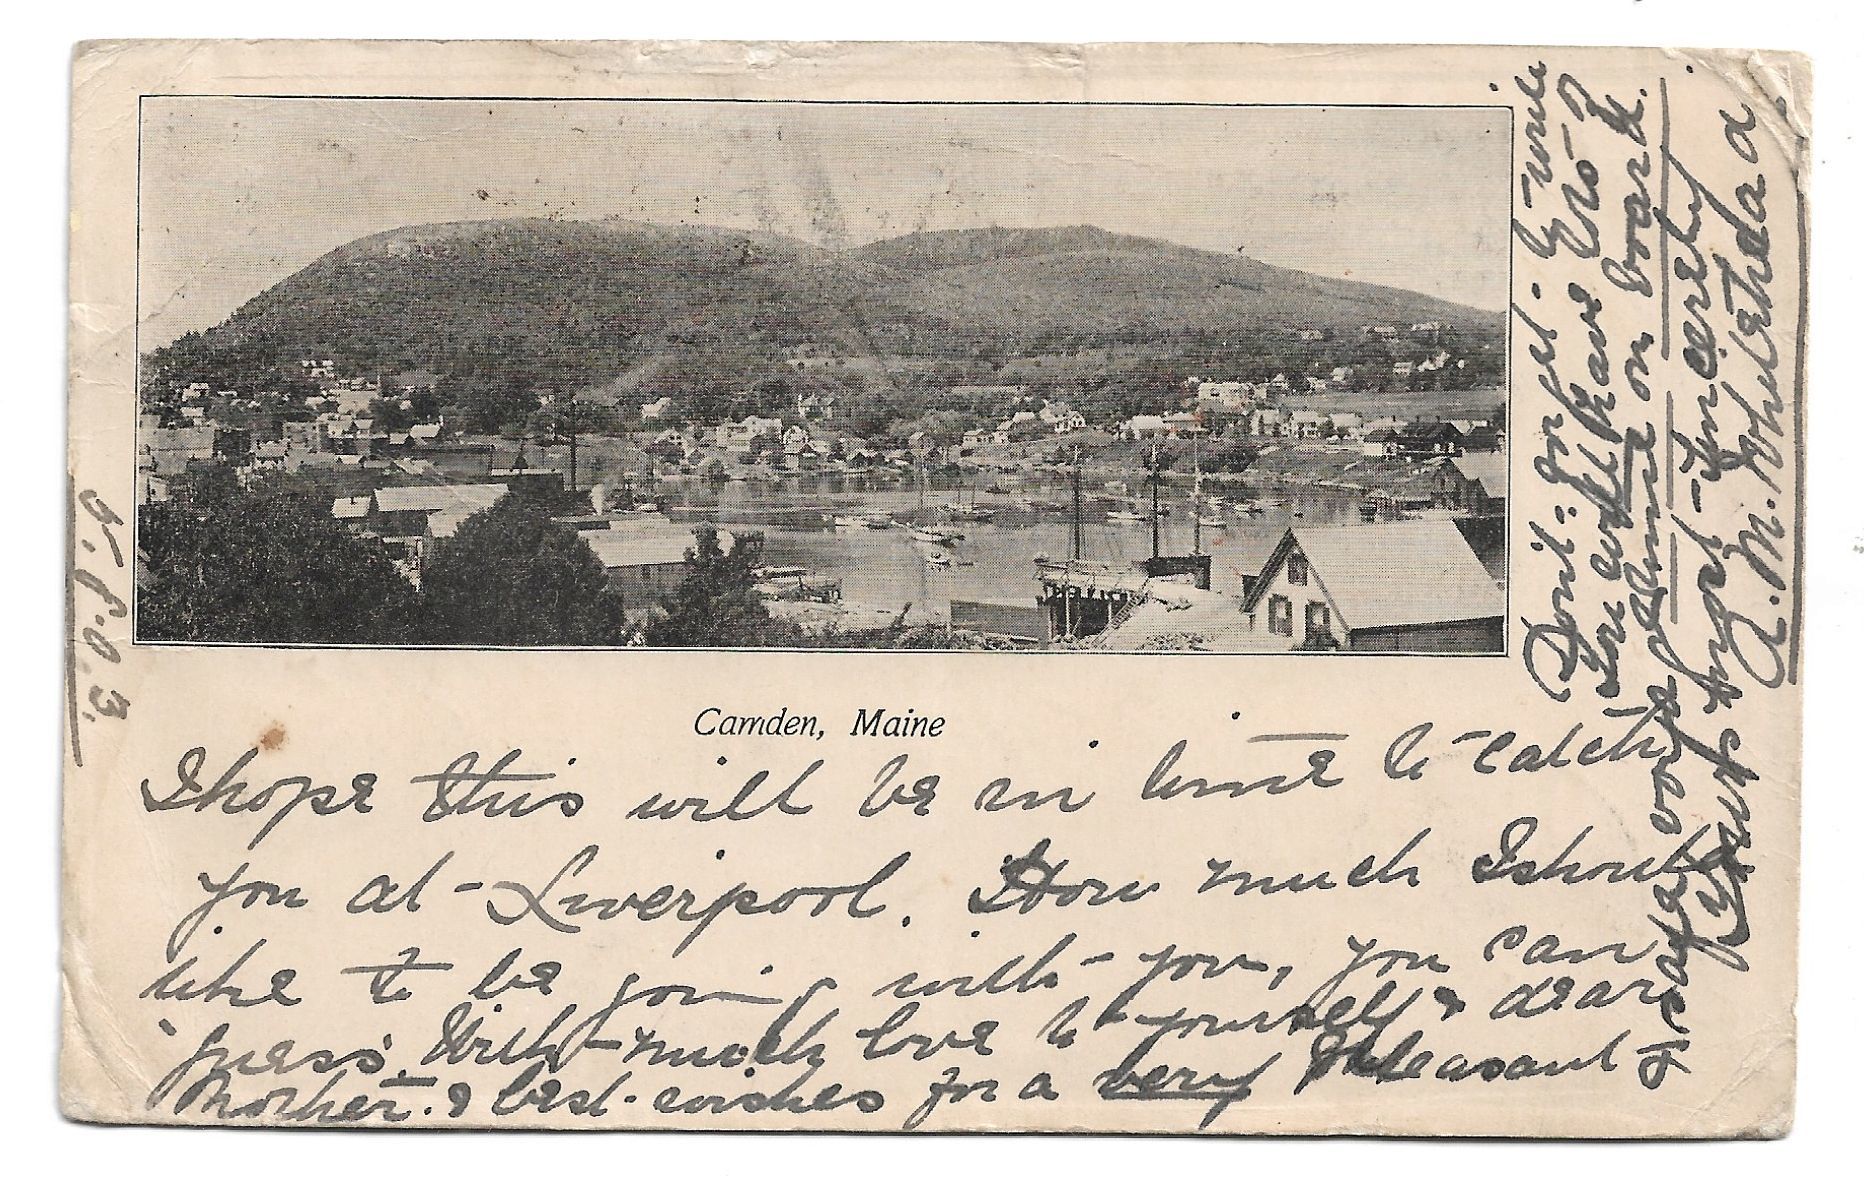 Camden, Maine
I hope this will be in time to catch
you at Liverpool. How much I should
like to be going with you, you can
guess. With much love to yourself & dear
Mother. & best wishes for a very pleasant
& safe voyage
Yours most sincerely
A. M.
Don't forget to write
You will have
time on board.